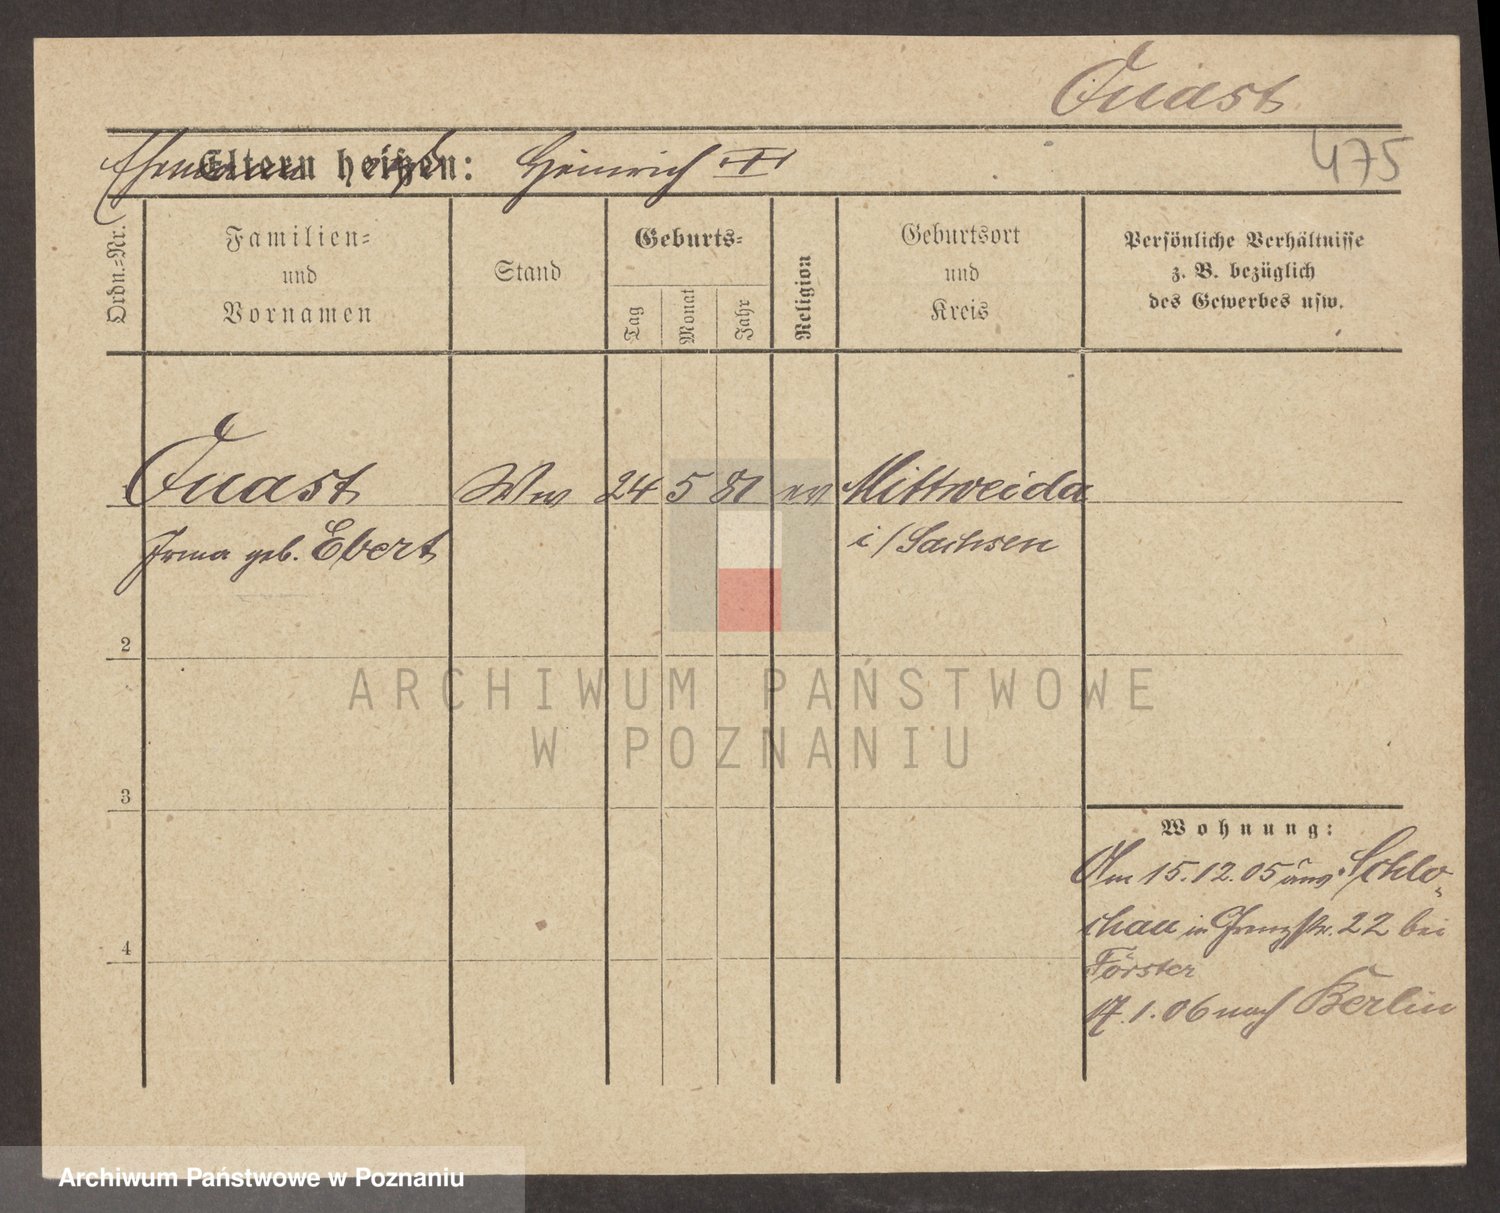 Quast
475
Eltern heißen: Heinrich
Ordn.-Nr.
Familien-
und
Vornamen
Stand
Geburts-
Tag
Monat
Jahr
Religion
Geburtsort
und
Kreis
Persönliche Verhältnisse
z. B. bezüglich
des Gewerbes usw.
Quast Ww 24 5 81 ev Mittweida
Irma geb. Ebert i/Sachsen
2
3
4
ARCHIWUM PAŃSTWOWE
W POZNANIU
Wohnung:
Am 15.12.05 aus Schlo-
chau in Grenzstr. 22 bei
Förster
17.1.06 nach Berlin
Archiwum Państwowe w Poznaniu